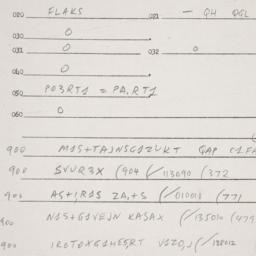 020 FLAKS 021 — QH QGL
030 0
031 0 032 0
040 0
050 PO3RT1 = PA,RT1
060 0
900 MAS+TAJNSG1ZUKT GAP C1FA
900 SVUR3X (904 (/113090 (372
900 AS+IRAS ZA,+S (/010010 (771
900 NAS+GAVEJN KASAX (/135010 (479
900 IROTOXGAHESRT VAZO,J (/138012